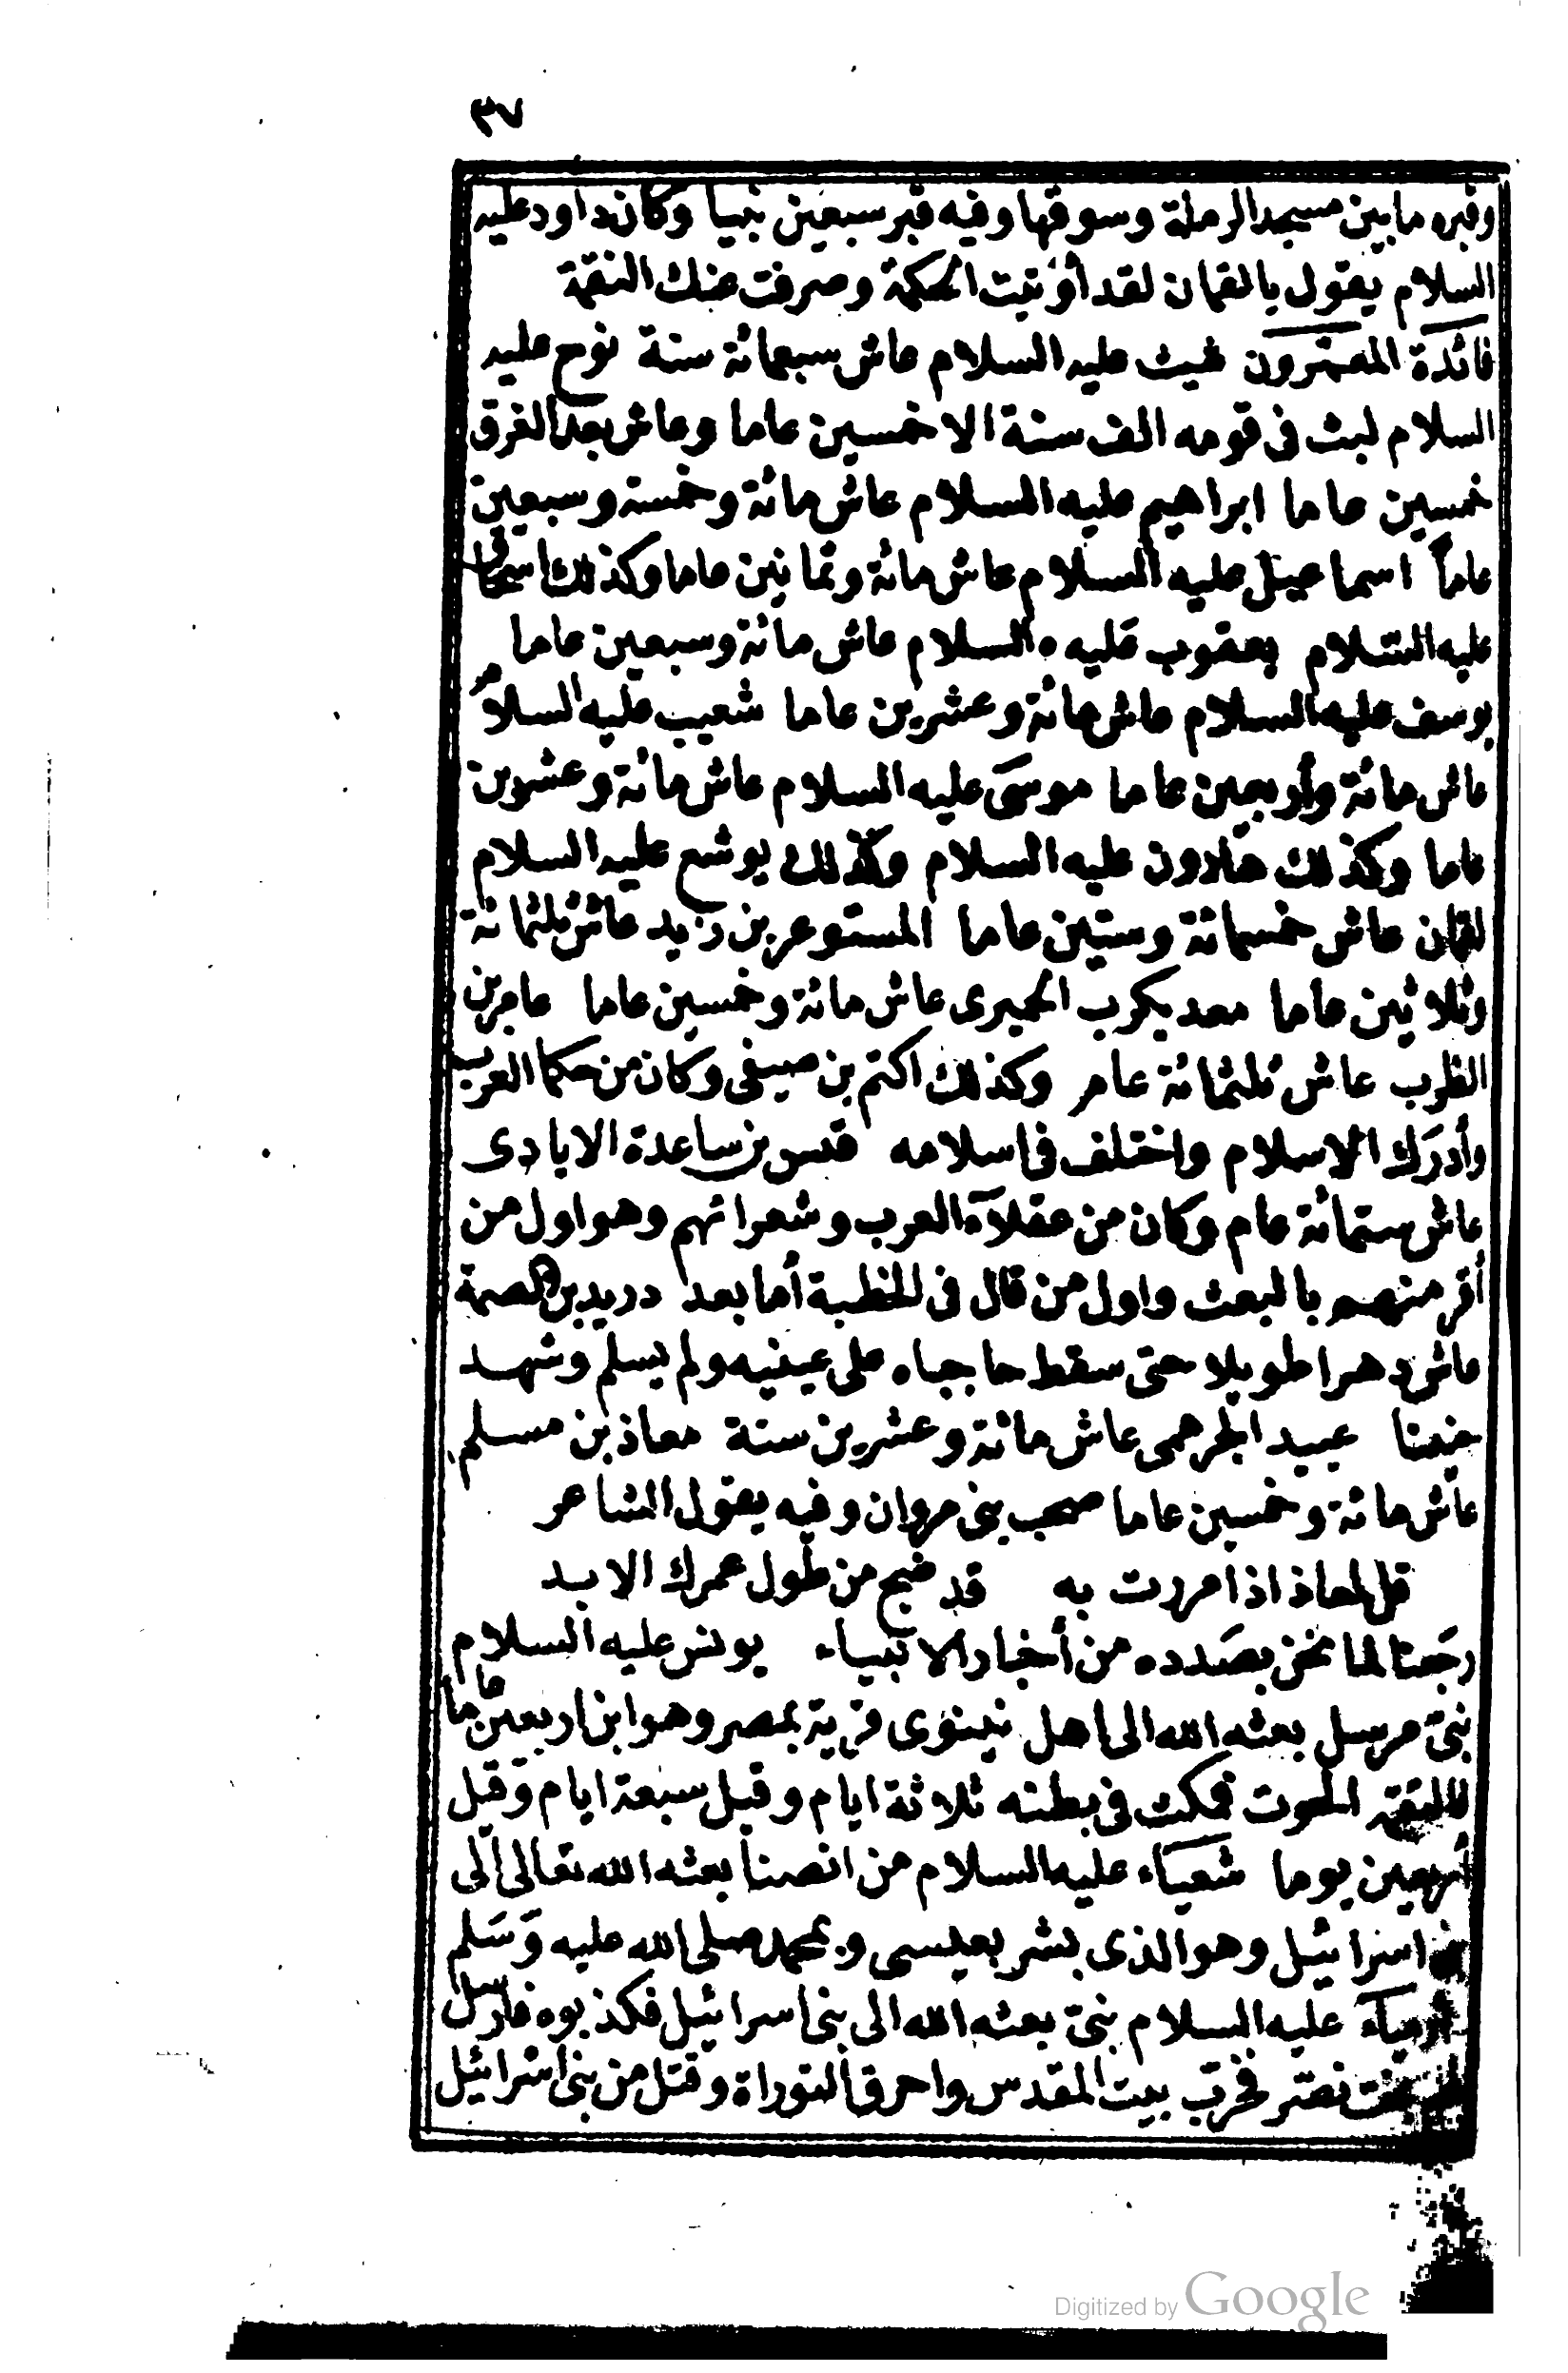 ٣٧
وقبره مابين مسجد الرملة وسوقها وفيه قبر سبعين نبيا وكان داود عليه
السلام يقول يالقمان لقد أوتيت الحكمة وصرفت عنك النقمة
فائدة المعمّرون شيث عليه السلام عاش سبعمائة سنة نوح عليه
السلام لبث فى قومه الف سنة الا خمسين عاما وعاش بعد الغرق
خمسين عاما ابراهيم عليه السلام عاش مائة وخمسة وسبعين
عاماً اسماعيل عليه السلام عاش مائة وثمانين عاما وكذلك اسحاق
عليه السلام يعقوب عليه السلام عاش مائة وسبعين عاما
يوسف عليه السلام عاش مائة وعشرين عاما شعيب عليه السلام
عاش مائة وأربعين عاما موسى عليه السلام عاش مائة وعشرين
عاما وكذلك هارون عليه السلام وكذلك يوشع عليه السلام
لقمان عاش خمسمائة وستين عاما المستوعر بن زيد عاش ثلثمائة
وثلاثين عاما معديكرب الحميرى عاش مائة وخمسين عاما عامر بن
الظرب عاش ثلثمائة عام وكذلك اكثم بن صيفى وكان من حكما العرب
وأدرك الاسلام واختلف فى اسلامه قس بن ساعدة الايادى
عاش ستمائة عام وكان من عقلآء العرب وشعرائهم وهو اول من
أقر منهم بالبعث واول من قال فى الخطبة أما بعد دريد بن الصمة
عاش دهرا طويلا حتى سقط حاجباه على عينيه ولم يسلم وشهد
حنينا عبيد الجرهمى عاش مائة وعشرين سنة معاذ بن مسلم
عاش مائة وخمسين عاما صحب بنى مروان وفيه يقول الشاعر
قل لمعاذ اذا مررت به قد ضج من طول عمرك الابد
رجعنا لما نحن بصدده من أخبار الانبياء يونس عليه السلام
نبىّ مرسل بعثه الله الى اهل نينوى قرية بمصر وهو ابن اربعين عاما
فالتقمه الحوت فمكث فى بطنه ثلاثة ايام وقيل سبعة ايام وقيل
أربعين يوما شعياء عليه السلام من انصنا بعثه الله تعالى الى
بنى اسرائيل وهو الذى بشر بعيسى وبمحمد صلى الله عليه وسلم
أرمياء عليه السلام نبىّ بعثه الله الى بنى اسرائيل فكذبوه فارسل
بخت نصّر فخرّب بيت المقدس واحرق التوراة وقتل من بنى اسرائيل
Digitized by Google